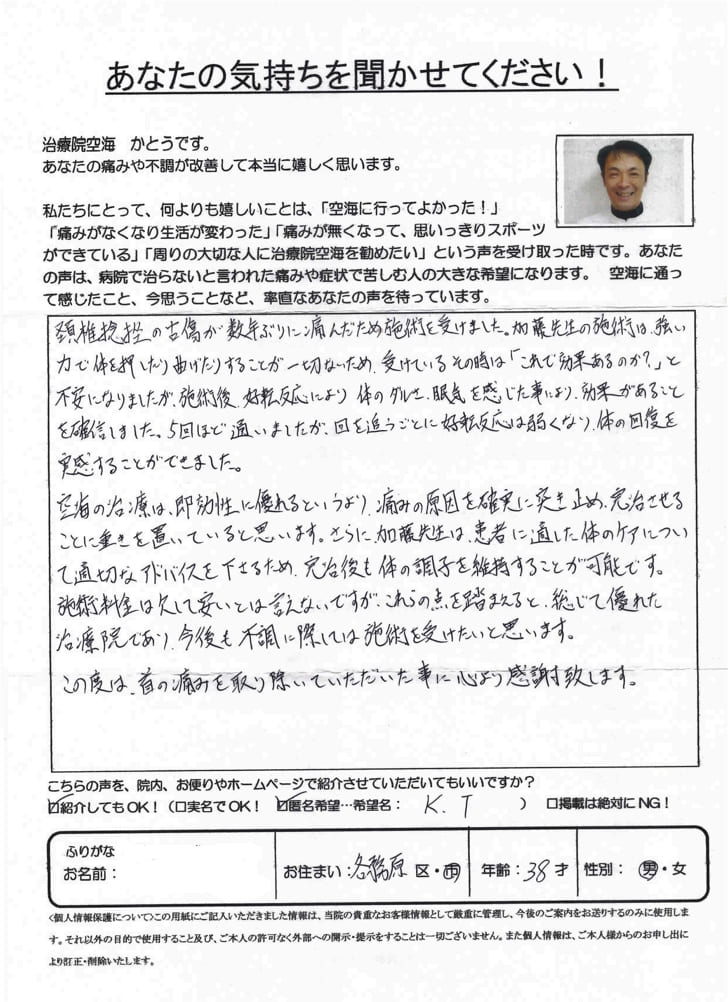 あなたの気持ちを聞かせてください！
治療院空海　かとうです。
あなたの痛みや不調が改善して本当に嬉しく思います。
私たちにとって、何よりも嬉しいことは、「空海に行ってよかった！」
「痛みがなくなり生活が変わった」「痛みが無くなって、思いっきりスポーツ
ができている」「周りの大切な人に治療院空海を勧めたい」という声を受け取った時です。あなた
の声は、病院で治らないと言われた痛みや症状で苦しむ人の大きな希望になります。　空海に通っ
て感じたこと、今思うことなど、率直なあなたの声を待っています。
頚椎捻挫の古傷が数年ぶりに痛んだため施術を受けました。加藤先生の施術は、強い
力で体を押したり曲げたりすることが一切ないため、受けているその時は「これで効果あるのか？」と
不安になりましたが、施術後、好転反応により体のダルさ、眠気を感じた事により、効果があること
を確信しました。5回ほど通いましたが、回を追うごとに好転反応は弱くなり、体の回復を
実感することができました。
空海の治療は、即効性に優れるというより、痛みの原因を確実に突き止め、完治させる
ことに重きを置いていると思います。さらに、加藤先生は、患者に適した体のケアについ
て適切なアドバイスを下さるため、完治後も体の調子を維持することが可能です。
施術料金は決して安いとは言えないですが、これらの点を踏まえると、総じて優れた
治療院であり、今後も不調に際しては施術を受けたいと思います。
この度は、首の痛みを取り除いていただいた事に心より感謝致します。
こちらの声を、院内、お便りやホームページで紹介させていただいてもいいですか？
☑紹介してもOK！（□実名でOK！　☑匿名希望…希望名：　K.T　）　□掲載は絶対にNG！
ふりがな
お名前：　お住まい：各務原 区・市　年齢：38才　性別：男・女
<個人情報保護について>この用紙にご記入いただきました情報は、当院の貴重なお客様情報として厳重に管理し、今後のご案内をお送りするのみに使用しま
す。それ以外の目的で使用すること及び、ご本人の許可なく外部への開示・提示をすることは一切ございません。また個人情報は、ご本人様からのお申し出に
より訂正・削除いたします。